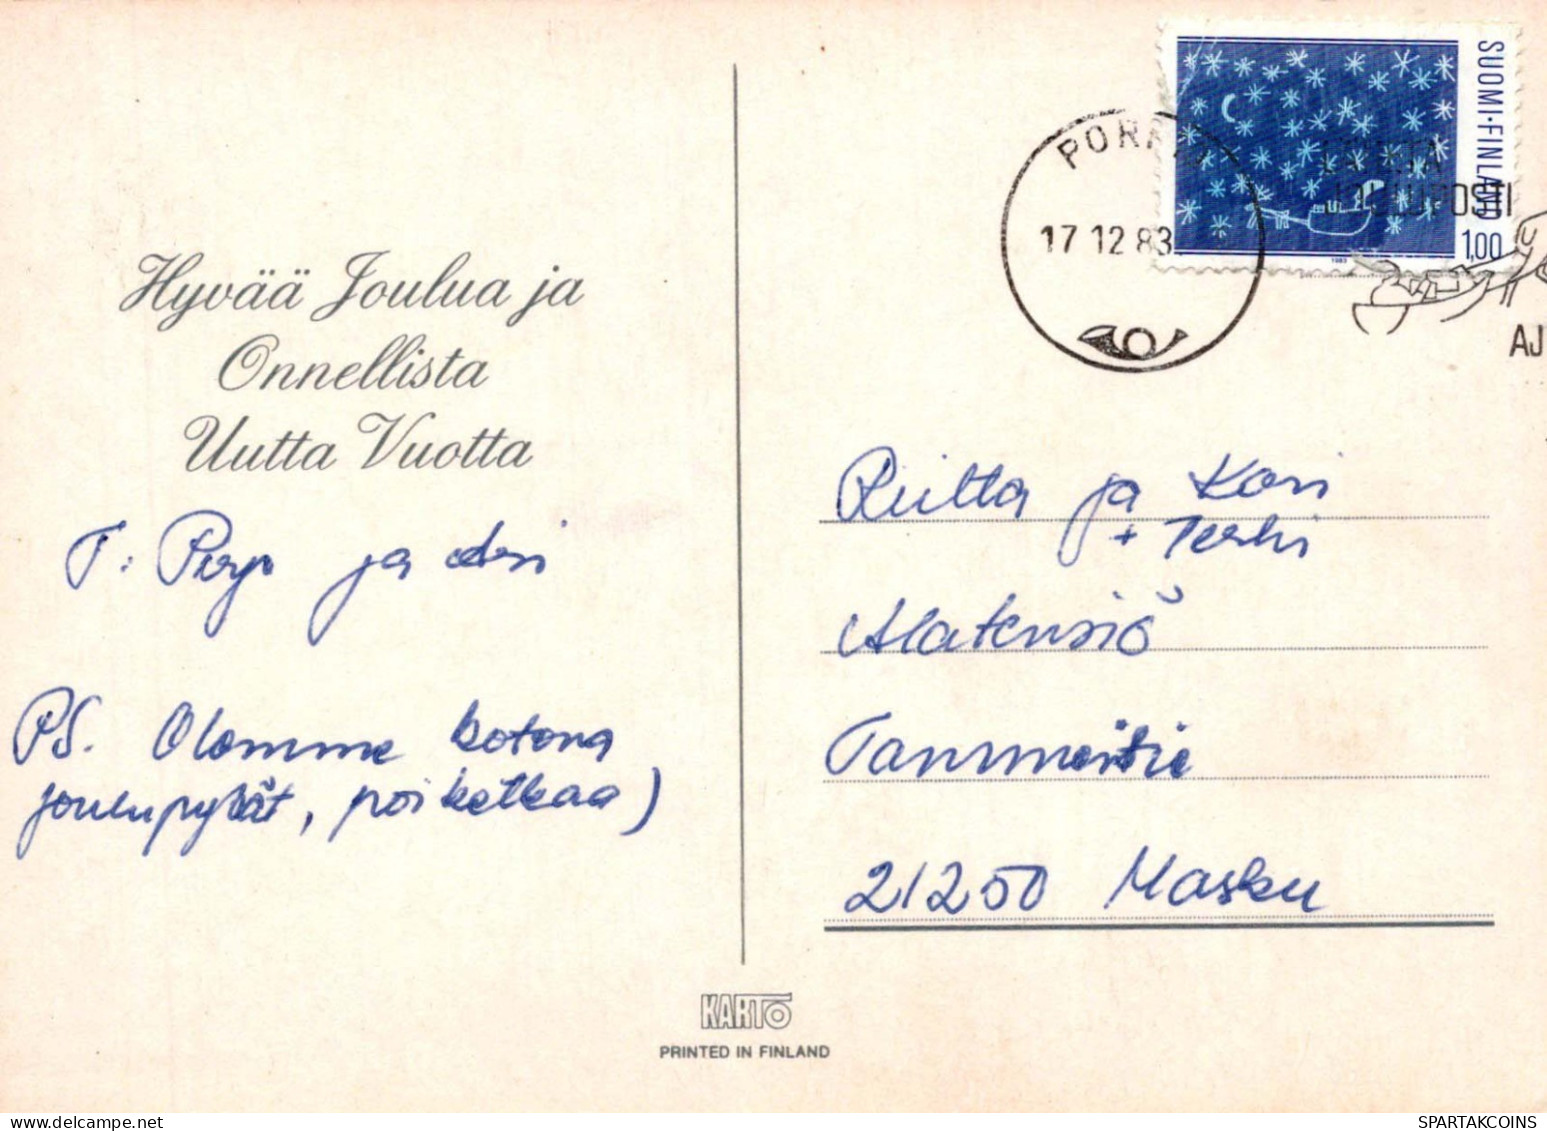 SUOMI·FINLAND
1,00
1983
17 12 83
JOULUPOSTI
AJ
Hyvää Joulua ja
Onnellista
Uutta Vuotta
T: Pirjo ja
PS. Olemme kotona
joulupyhät, poiketkaa)
Riitta ja Kari
+ Terhi
Alatensiö
Tammeistie
21250 Masku
KARTO
PRINTED IN FINLAND
SPARTAKCOINS